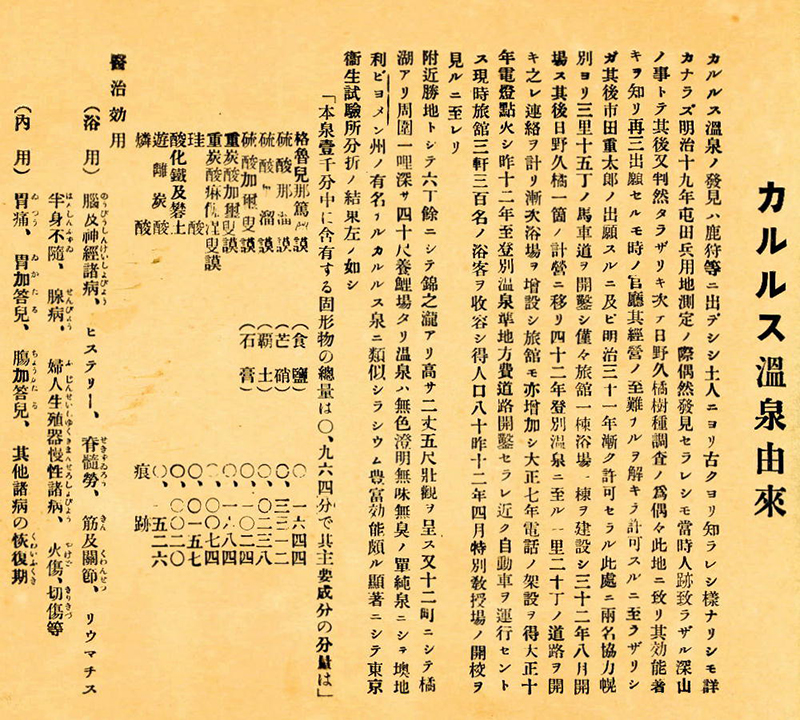 カルルス溫泉由來
カルルス溫泉ノ發見ハ鹿狩等ニ出デシシ土人ニヨリ古クヨリ知ラレシ樣ナリシモ詳
カナラズ明治十九年屯田兵用地測定ノ際偶然發見セラレシモ當時人跡致ラザル深山
ノ事トテ其後又判然タラザリキ次テ日野久橘樹種調査ノ爲偶々此地ニ致リ其効能著
キヲ知リ再三出願セルモ時ノ官廳其經營ノ至難ナルヲ解キテ許可スルニ至ラザリシ
ガ其後市田重太郎ノ出願スルニ及ビ明治三十一年漸ク許可セラル此處ニ兩名協力幌
別ヨリ三里十五丁ノ馬車道ヲ開鑿シ僅々旅館一棟浴場一棟ヲ建設シ三十二年八月開
場ス其後日野久橘一箇ノ計營ニ移リ四十二年登別溫泉ニ至ル一里二十丁ノ道路ヲ開
キ之レ連絡ヲ計リ漸次浴場ヲ增設シ旅館モ亦增加シ大正七年電話ノ架設ヲ得大正十
年電燈點火シ昨十二年至登別溫泉準地方費道路開鑿セラレ近ク自動車ヲ運行セント
ス現時旅館三軒三百名ノ浴客ヲ收容シ得人口八十昨十二年四月特別敎授場ノ開校ヲ
見ルニ至レリ
附近勝地トシテ六丁餘ニシテ錦之瀧アリ高サ二丈五尺壯觀ヲ呈ス又十二町ニシテ橘
湖アリ周圍一哩深サ四十尺養鯉場タリ溫泉ハ無色澄明無味無臭ノ單純泉ニシテ墺地
利ビヨメン州ノ有名ナルカルルス泉ニ類似シラシウム豊富効能頗ル顯著ニシテ東京
衞生試驗所分折ノ結果左ノ如シ
「本泉壹千分中に含有する固形物の總量は〇、九六四分で其主要成分の分量は」
格魯兒那篤𠌃謨 （食鹽） 〇、一六四四
硫酸那𠌃謨 （芒硝） 〇、三三一二
硫酸 溜謨 （覇土） 〇、〇二三八
硫酸加爾叟謨 （石膏） 〇、一〇二四
重炭酸加爾叟謨 〇、一八八四
重炭酸麻倔涅叟謨 〇、〇〇七四
珪酸 〇、〇一五七
酸化鐵及礬土 〇、〇〇二〇
遊離炭酸 〇、一五二六
燐酸 痕跡
醫治効用
（浴用） 腦及神經諸病、ヒステリー、脊髓勞、筋及關節、リウマチス
半身不隨、腺病、婦人生殖器慢性諸病、火傷、切傷等
（內用） 胃痛、胃加答兒、膓加答兒、其他諸病の恢復期